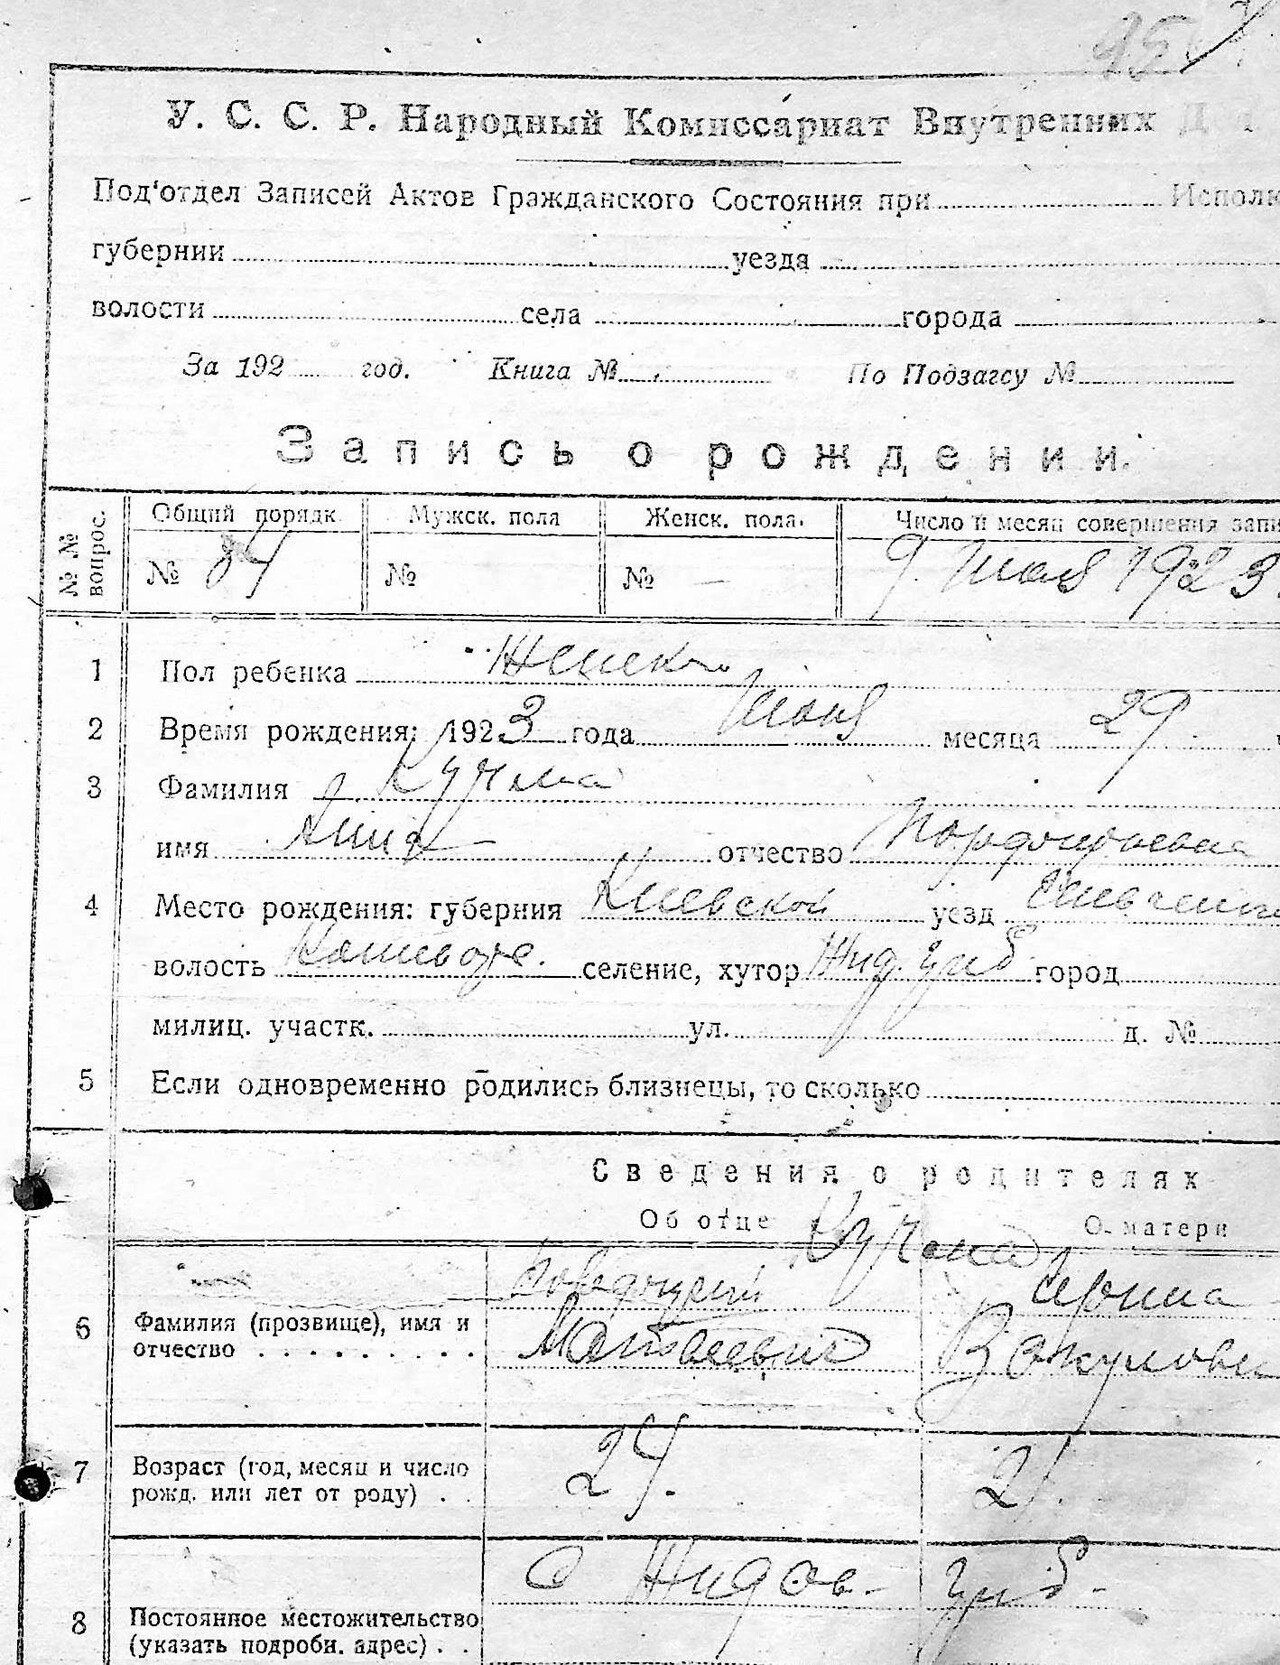 У. С. С. Р. Народный Комиссариат Внутренних
Под'отдел Записей Актов Гражданского Состояния при Исполк
губернии уезда
волости села города
За 192 год. Книга № По Подзагсу №
Запись о рождении.
№ № вопрос. Общий порядк Мужск. пола Женск. пола. Число и месяц совершения запи
№ 84 № № — 9. Июля 1923.
1 Пол ребенка Женск
2 Время рождения: 1923 года Июня месяца 29
3 Фамилия Кучма
имя Анна отчество Порфирьевна
4 Место рождения: губерния Киевской уезд
волость селение, хутор Жид. Гриб. город
милиц. участк. ул. д. №
5 Если одновременно родились близнецы, то сколько
Сведения о родителях
Об отце Кучма О матери
6 Фамилия (прозвище), имя и отчество Матвеевич Ирина
7 Возраст (год, месяц и число рожд. или лет от роду) 24. 21.
8 Постоянное местожительство (указать подробн. адрес) С Жидов- Гриб-